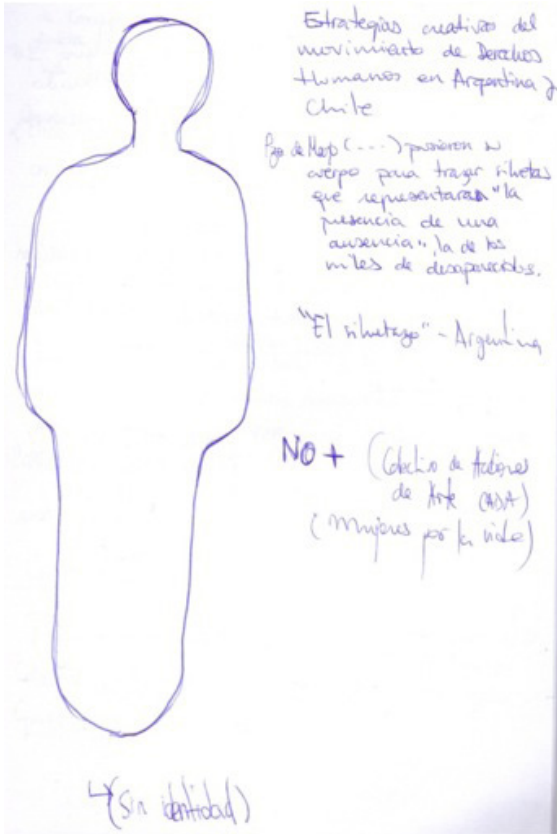 Estrategias creativas del
movimiento de Derechos
Humanos en Argentina y
Chile
de Mayo (....) pusieron su
cuerpo para trazar siluetas
que representaran "la
presencia de una
ausencia", la de los
miles de desaparecidos.
"El siluetazo" - Argentina
NO + (Colectivo de Acciones
de Arte (ADA)
(Mujeres por la vida)
↳ (Sin identidad)